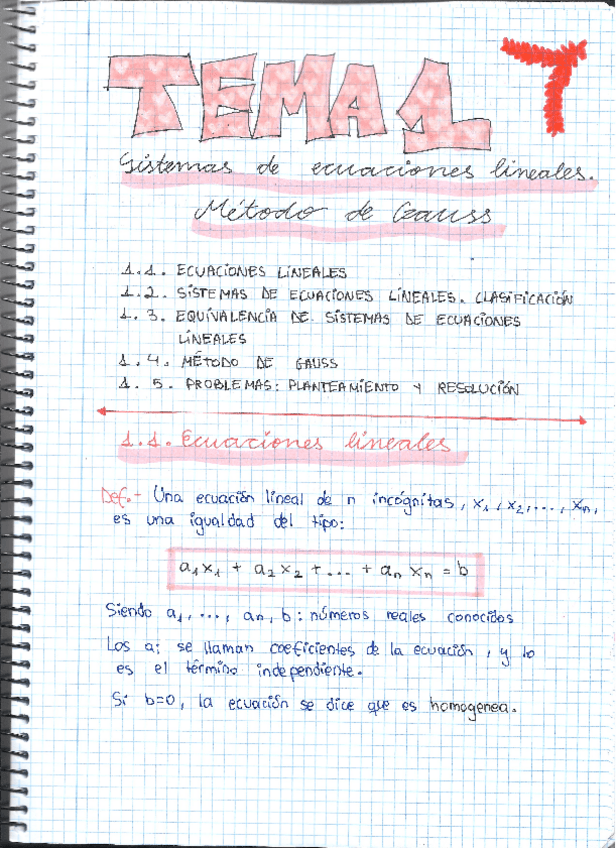 TEMA 1 T
Sistemas de ecuaciones lineales.
Método de Gauss
1.1. ECUACIONES LINEALES
1.2. SISTEMAS DE ECUACIONES LINEALES. CLASIFICACIÓN
1.3. EQUIVALENCIA DE SISTEMAS DE ECUACIONES
LINEALES
1.4. MÉTODO DE GAUSS
1.5. PROBLEMAS: PLANTEAMIENTO Y RESOLUCIÓN
1.1. Ecuaciones lineales
Def.- Una ecuación lineal de n incógnitas, x₁, x₂, ..., xₙ,
es una igualdad del tipo:
a₁x₁ + a₂x₂ + ... + aₙxₙ = b
Siendo a₁, ..., aₙ, b: números reales conocidos
Los aᵢ se llaman coeficientes de la ecuación, y b
es el término independiente.
Si b=0, la ecuación se dice que es homogenea.